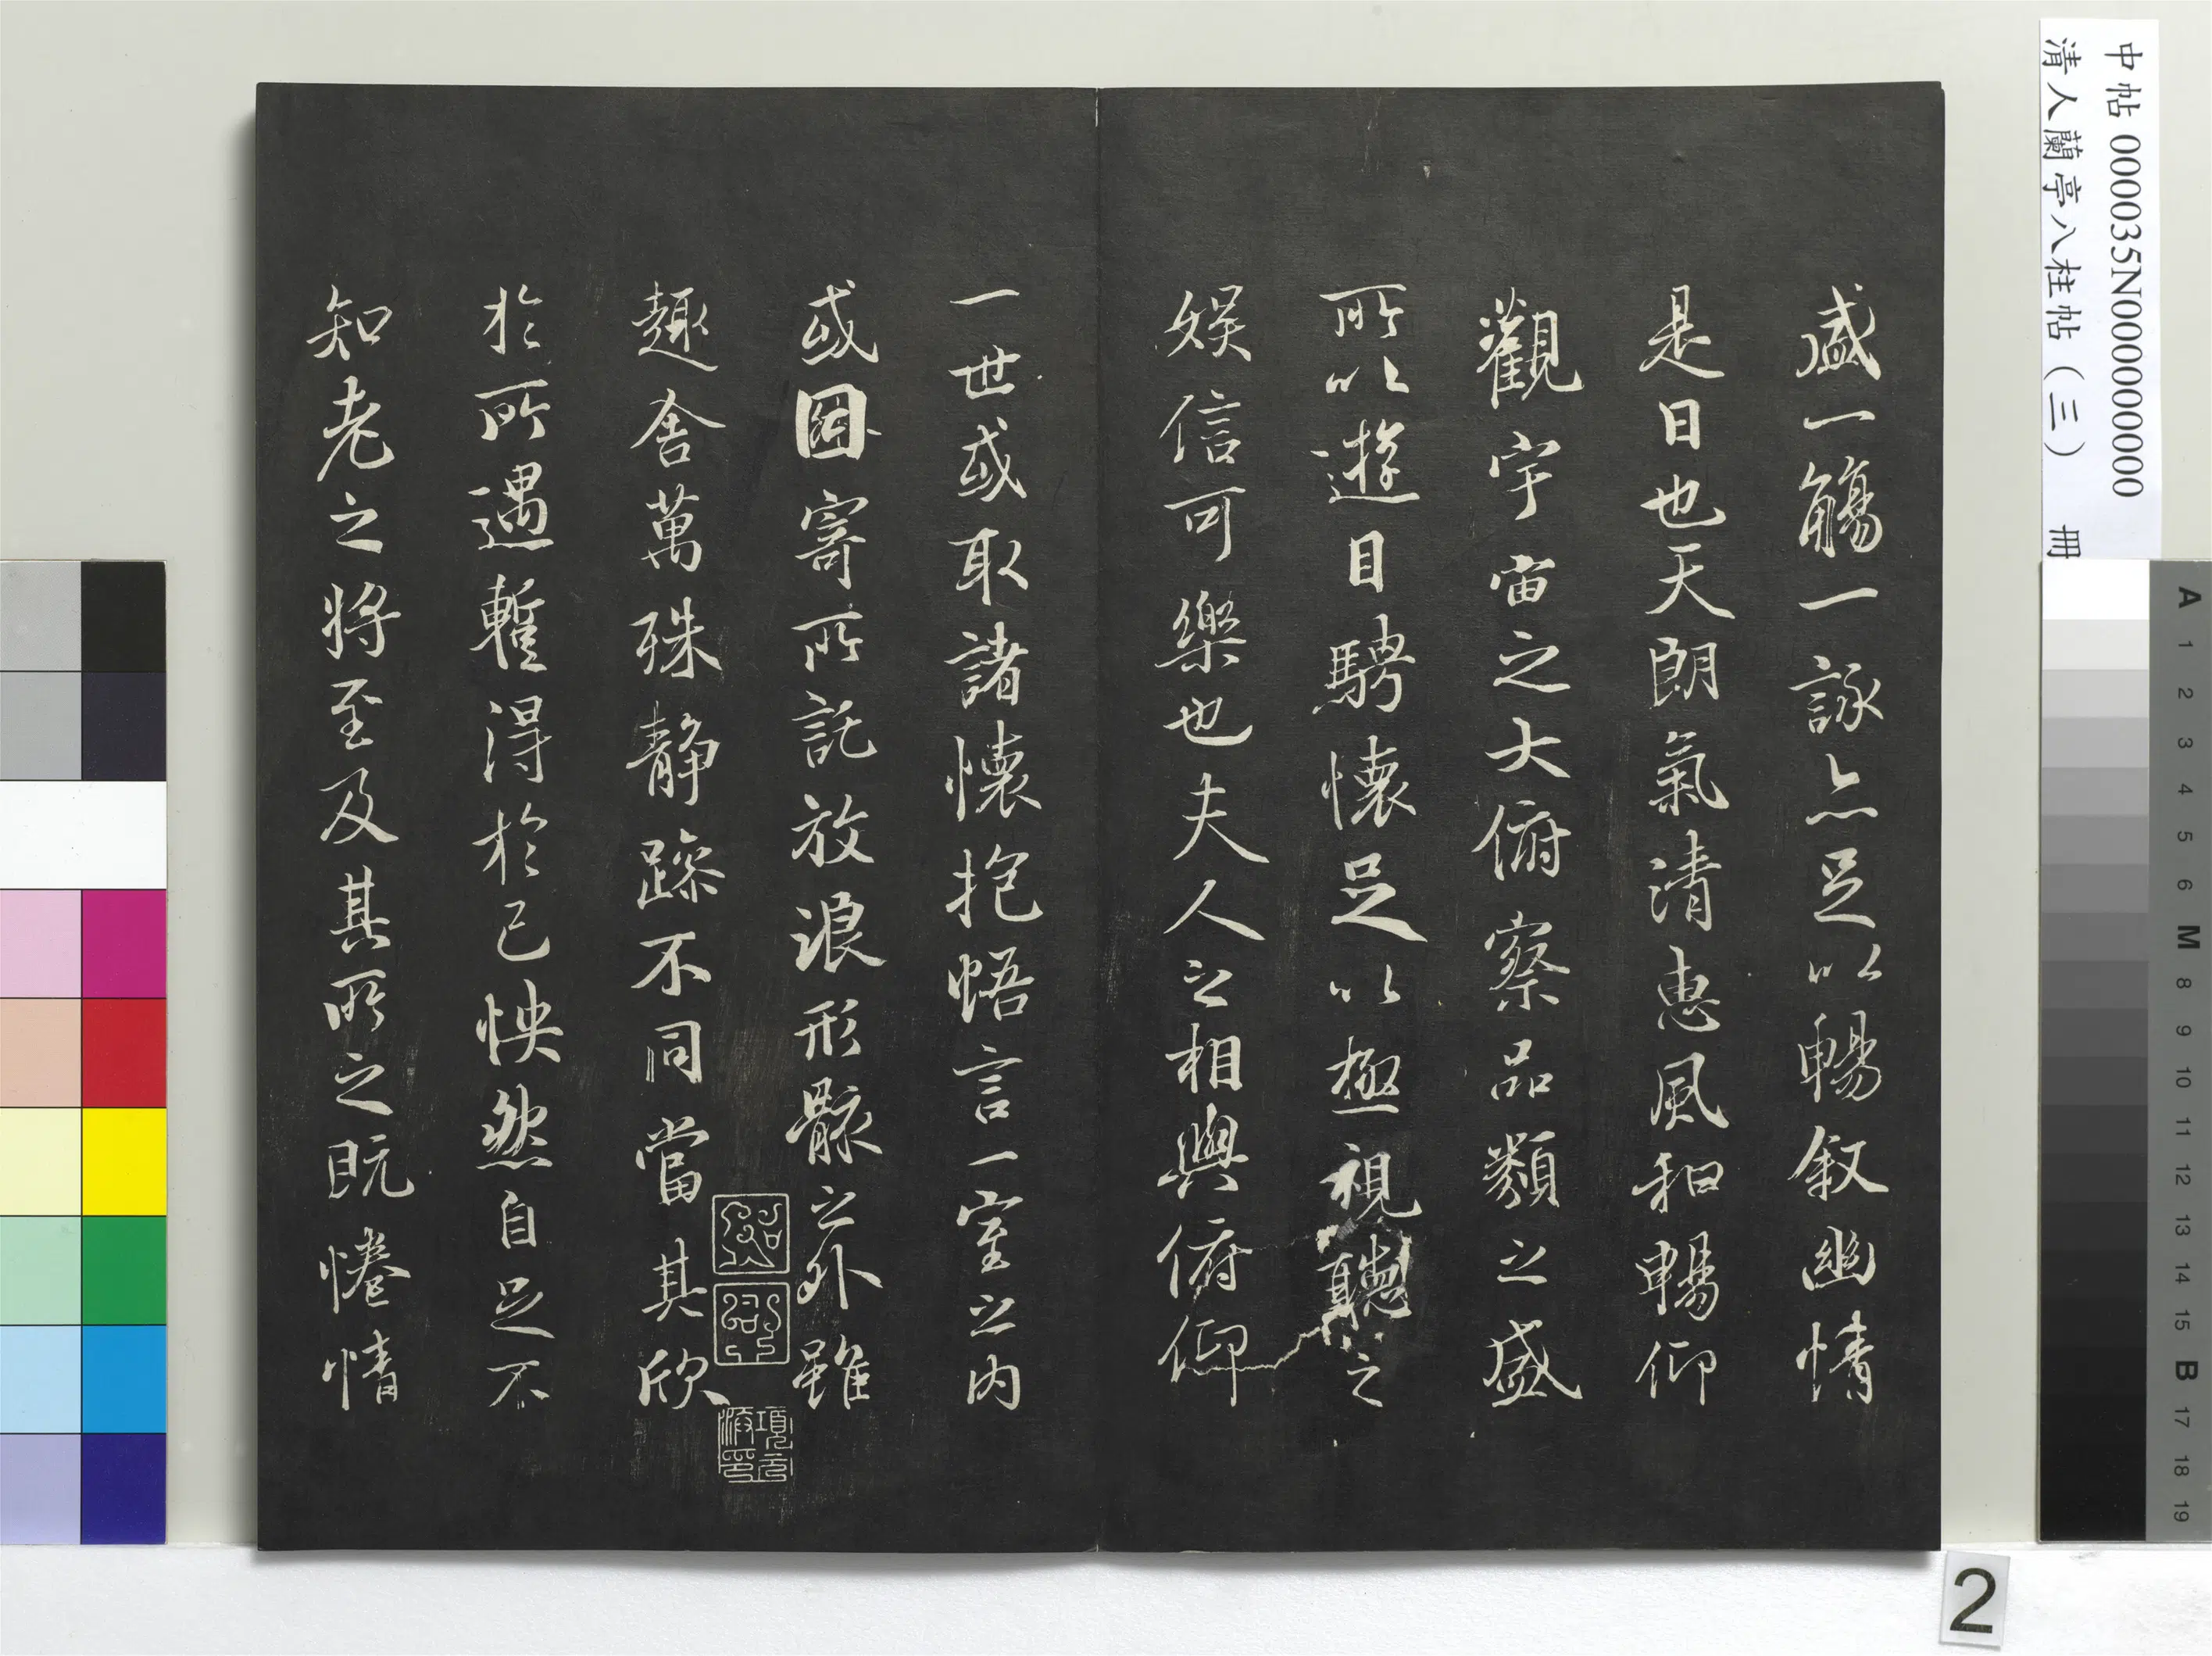 盛一觴一詠亦足以暢敘幽情
是日也天朗氣清惠風和暢仰
觀宇宙之大俯察品類之盛
所以遊目騁懷足以極視聽之
娛信可樂也夫人之相與俯仰
一世或取諸懷抱悟言一室之內
或因寄所託放浪形骸之外雖
趣舍萬殊靜躁不同當其欣
於所遇蹔得於己怏然自足不
知老之將至及其所之既惓情
項元汴印
中帖 000035N000000000
清人蘭亭八柱帖(三) 冊
A
1
2
3
4
5
6
M
8
9
10
11
12
13
14
15
B
17
18
19
2